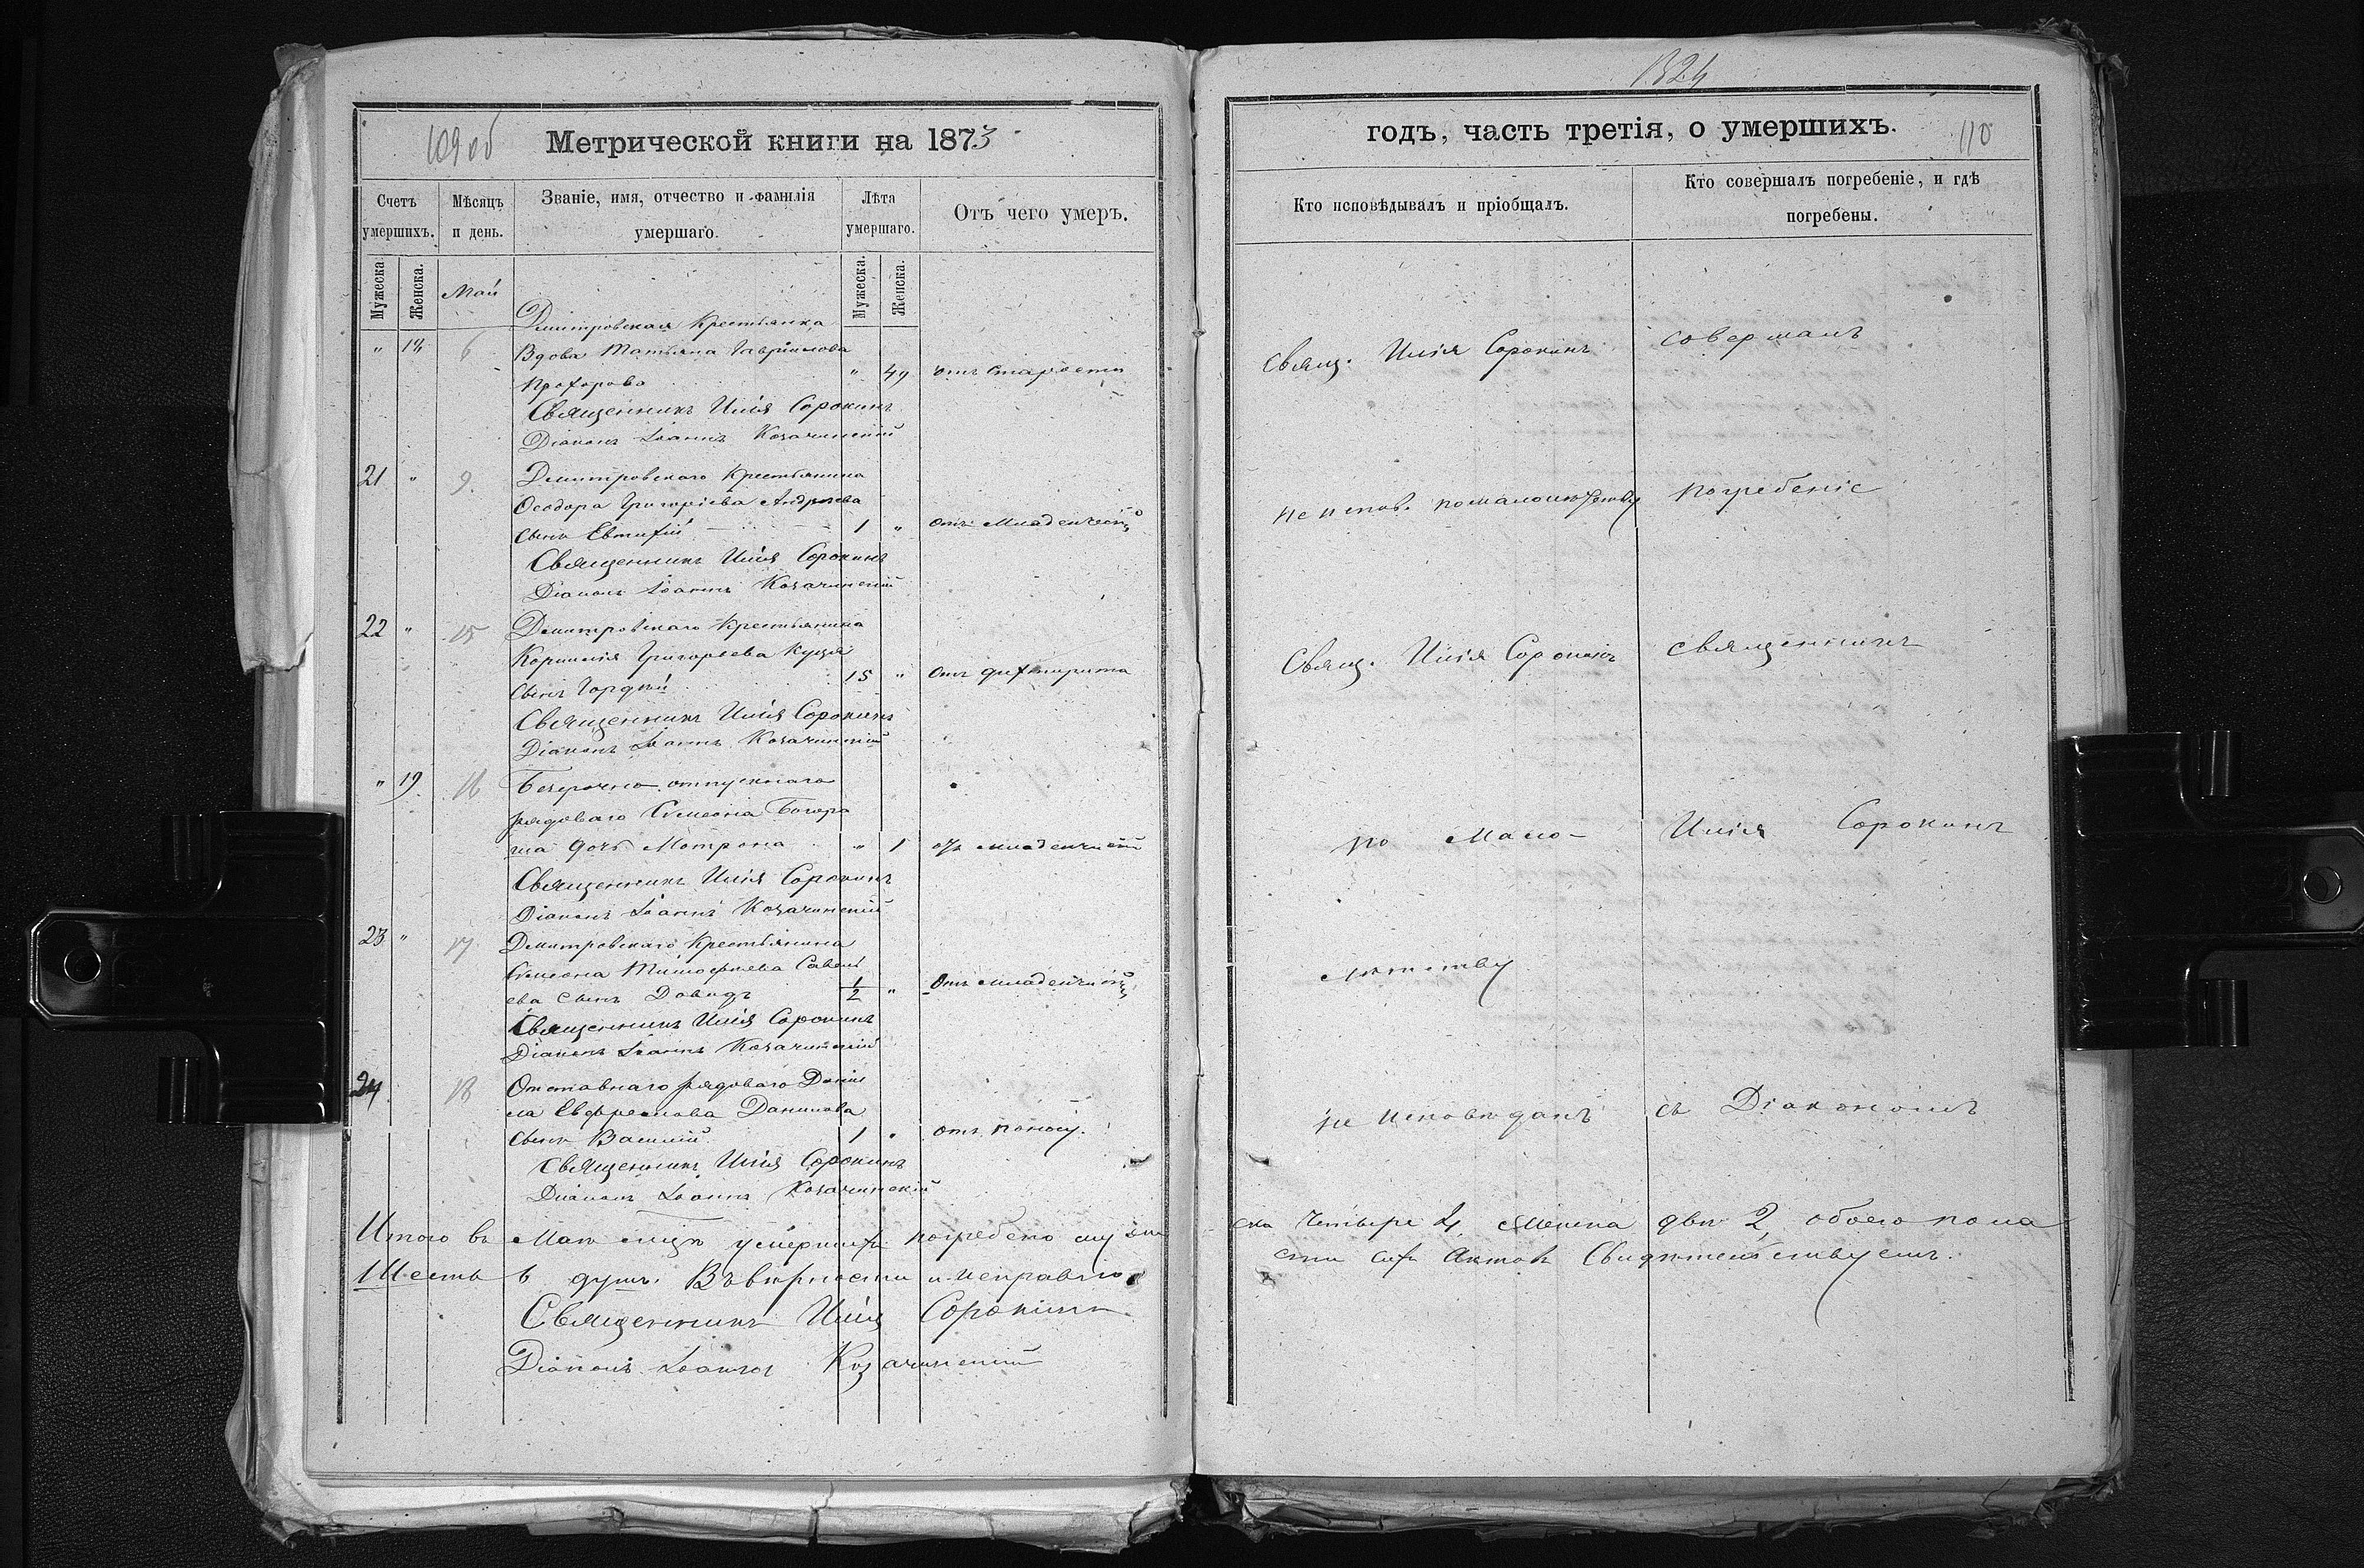 109 об
Метрической книги на 1873
Счетъ умершихъ.
Мѣсяцъ и день.
Званіе, имя, отчество и фамилія умершаго.
Лѣта умершаго.
Отъ чего умеръ.
Мужеска.
Женска.
Мужеска.
Женска.
Май
Дмитровская Крестьянка
" 18 6 Вдова Татьяна Гавріилова
Прохорова " 49 отъ старости
Священникъ Илія Сорокинъ
Діаконъ Іоаннъ Козачинскій
21 " 9. Дмитровскаго Крестьянина
Ѳеодора Григоріева Андреева
сынъ Евтихій 1 " отъ младенческой
Священникъ Илія Сорокинъ
Діаконъ Іоаннъ Козачинскій
22 " 15 Дмитровскаго Крестьянина
Корнилія Григорьева Куцая
сынъ Гордѣй 15 " отъ дифтирита
Священникъ Илія Сорокинъ
Діаконъ Іоаннъ Козачинскій
" 19. 16 Безсрочно отпускнаго
рядоваго Симеона
дочь Мотрона " 1 отъ младенческой
Священникъ Илія Сорокинъ
Діаконъ Іоаннъ Козачинскій
23 " 17 Дмитровскаго Крестьянина
Симеона Тимофѣева Савель
ева сынъ Давидъ 1/2 " Отъ младенческой
Священникъ Илія Сорокинъ
Діаконъ Іоаннъ Козачинскій
24 18 Отставнаго рядоваго Дані
ла Евфремова Данилова
сынъ Василій 1 " отъ поносу.
Священникъ Илія Сорокинъ
Діаконъ Іоаннъ Козачинскій
Итого въ Маѣ м-цѣ умершихъ погребено муже
Шесть 6 душъ. Въ вѣрности и исправно
Священникъ Илія Сорокинъ
Діаконъ Іоаннъ Козачинскій
1324
годъ, часть третія, о умершихъ.
110
Кто исповѣдывалъ и пріобщалъ.
Кто совершалъ погребеніе, и гдѣ погребены.
Свящ. Илія Сорокинъ совершалъ
не испов. по малолѣтству погребеніе
Свящ. Илія Сорокинъ священникъ
по мало- Илія Сорокинъ
лѣтству
не исповѣданъ съ Діакономъ
ска четыре 4, женска двѣ 2, обоего пола
сти сихъ актовъ свидѣтельствуемъ.